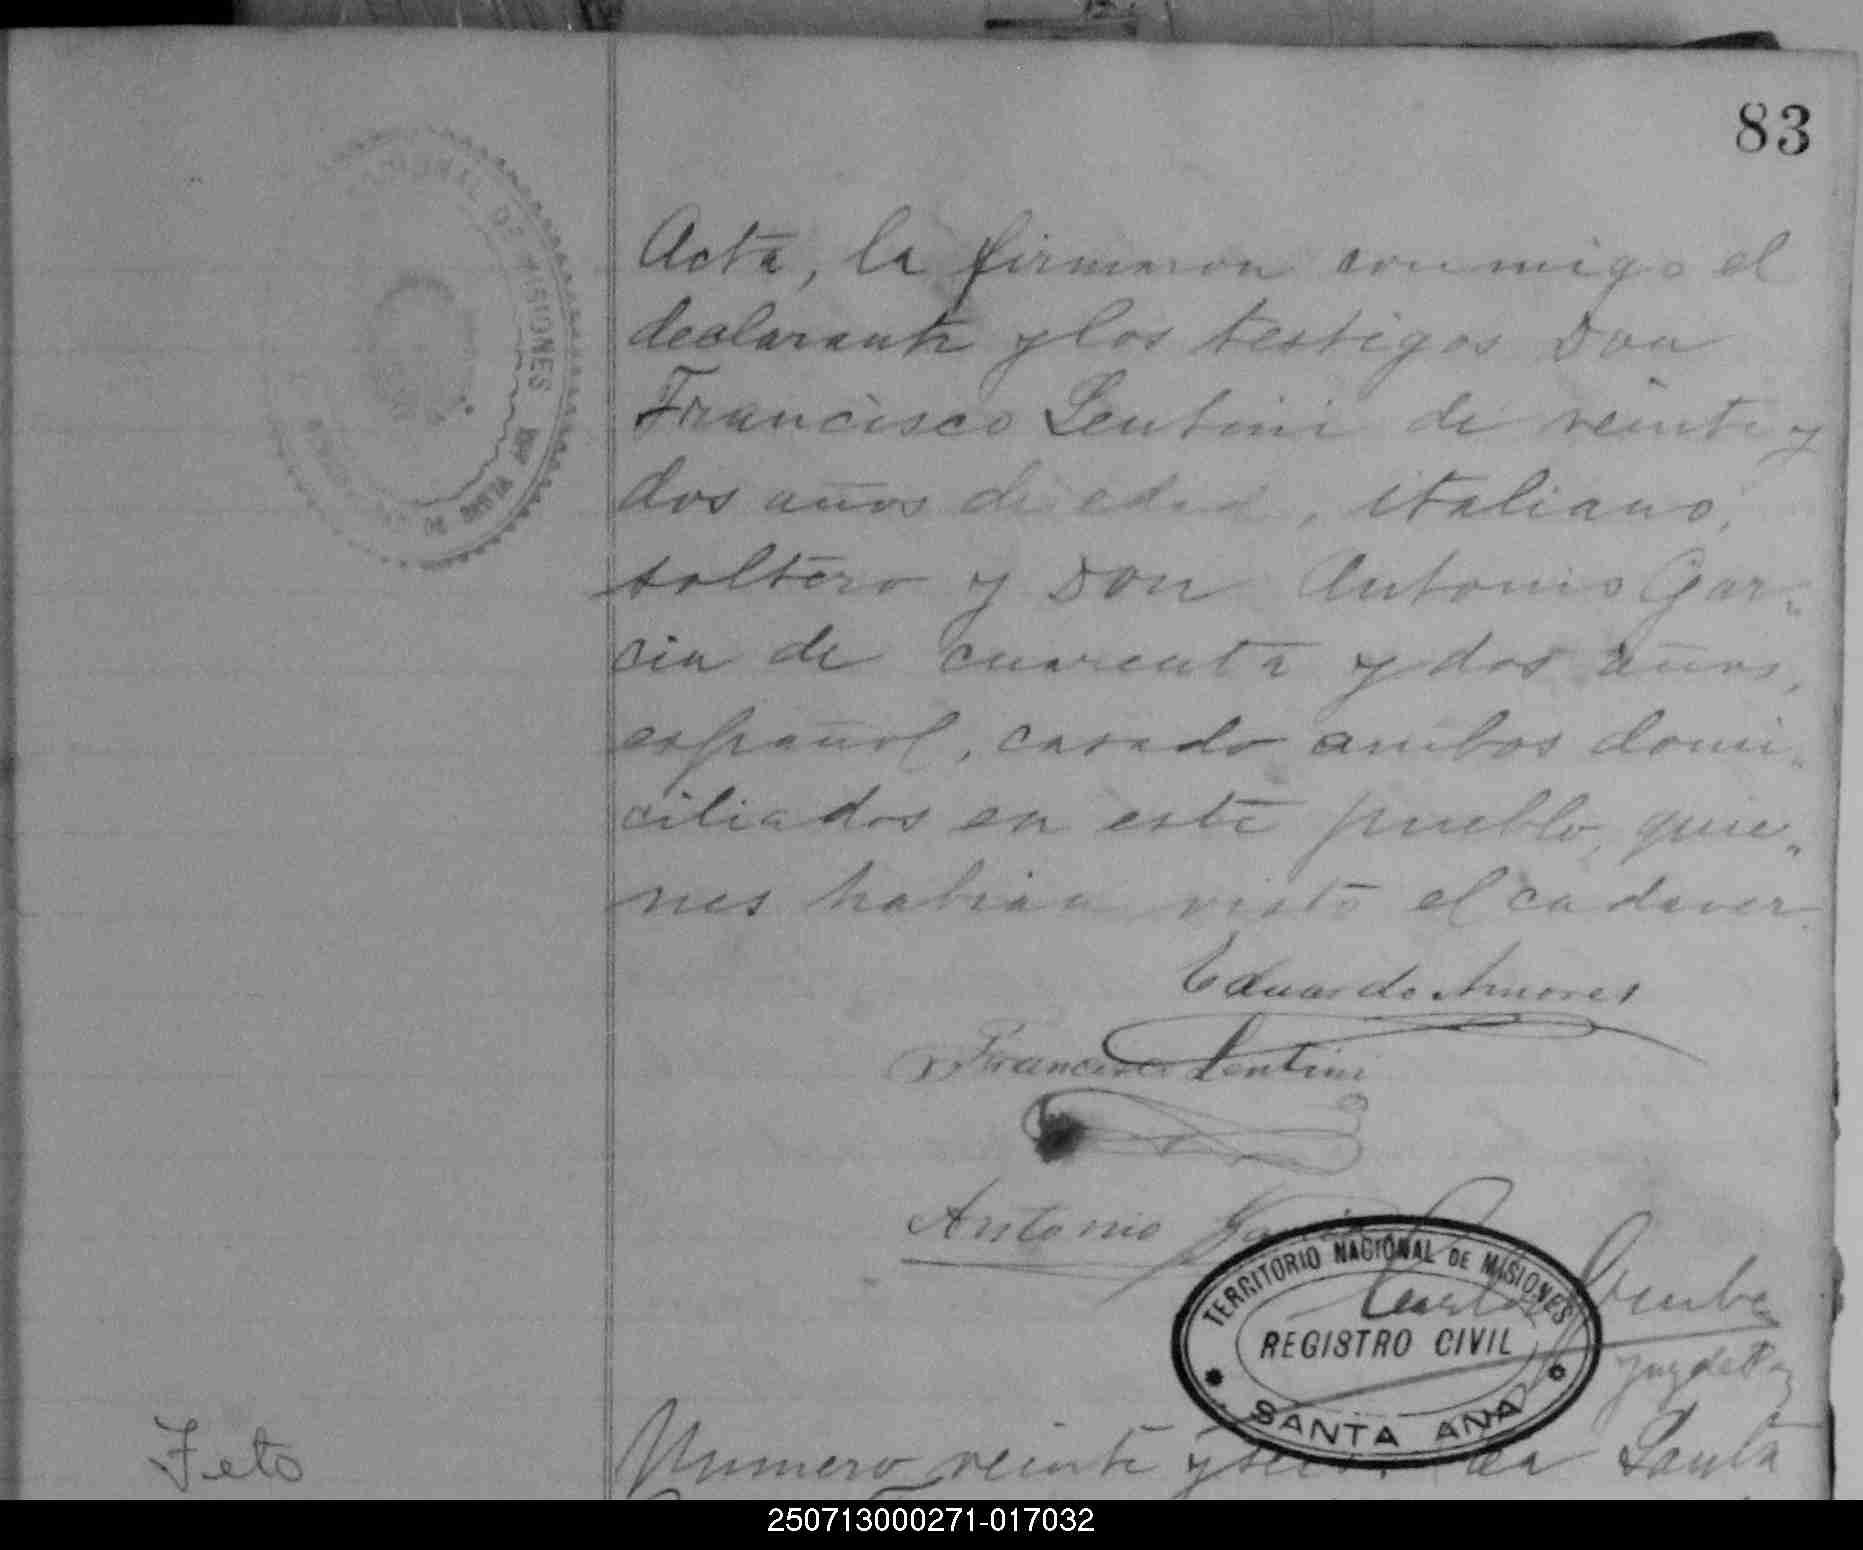 83
Acta, la firmaron conmigo el
declarante y los testigos Don
Francisco Lentini de veinte y
dos años de edad, italiano,
soltero y Don Antonio Gar-
cia de cuarenta y dos años,
español, casado ambos domi-
ciliados en este pueblo, quie-
nes habian visto el cadaver.
Eduardo Amores
Francisco Lentini
Antonio Garcia
Carlos
Juez de Paz
TERRITORIO NACIONAL DE MISIONES
REGISTRO CIVIL
SANTA ANA
Feto
Numero veinte y en Santa
250713000271-017032